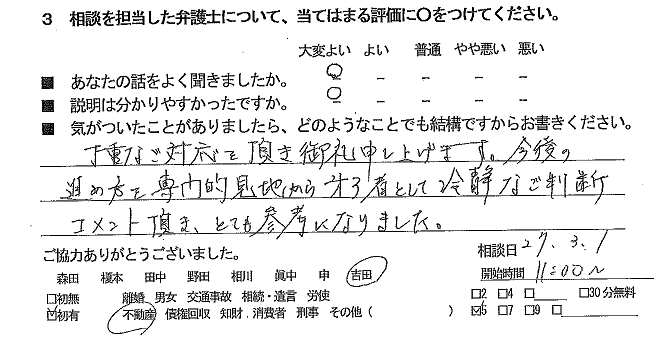 3 相談を担当した弁護士について、当てはまる評価に○をつけてください。
大変よい よい 普通 やや悪い 悪い
■ あなたの話をよく聞きましたか。 ○ － － － －
■ 説明は分かりやすかったですか。 ○ － － － －
■ 気がついたことがありましたら、どのようなことでも結構ですからお書きください。
丁重なご対応を頂き御礼申し上げます。今後の
進め方を専門的見地から第3者として冷静なご判断
コメント頂き、とても参考になりました。
ご協力ありがとうございました。
相談日 27.3.1
森田 榎本 田中 野田 相川 眞中 申 吉田
開始時間 11:00〜
□初無 離婚 男女 交通事故 相続・遺言 労使
□2 □4 □ □30分無料
☑初有 不動産 債権回収 知財 . 消費者 刑事 その他 ( )
☑5 □7 □9 □